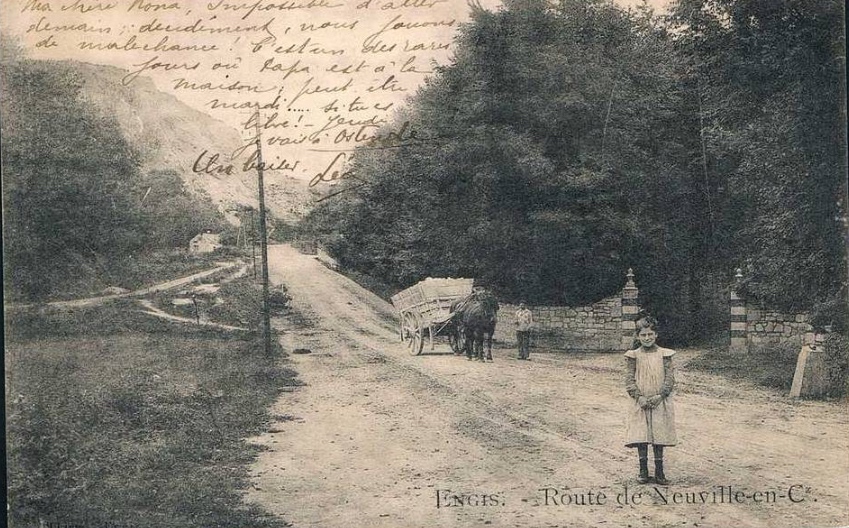 Ma chère Rona, Impossible d'aller
demain; décidément, nous jouons
de malechance! C'est un des rares
jours où Papa est à la
maison; peut être
mardi.... si tu es
libre! - Jeudi
je vais à Ostende
Un baiser Léa
ENGIS. - Route de Neuville-en-Cz.